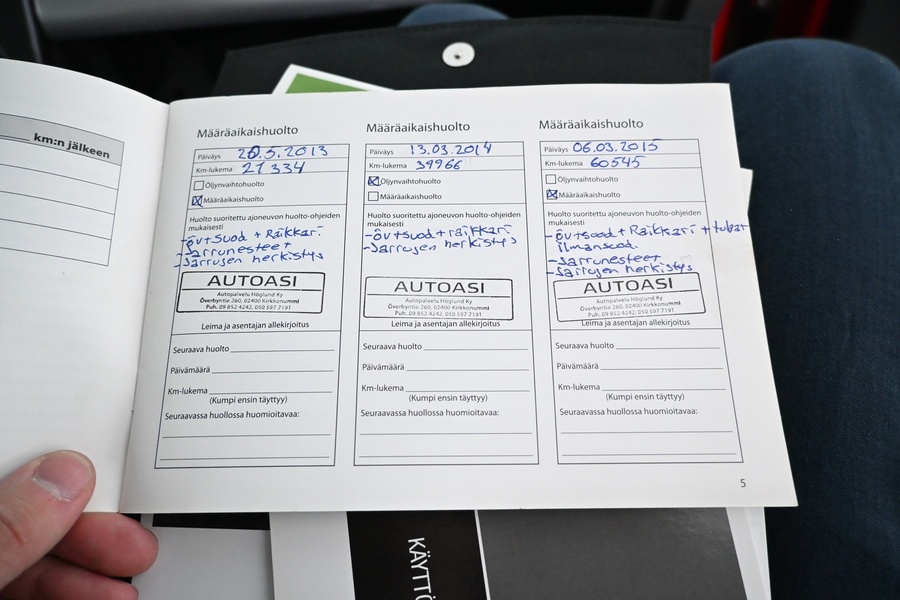 km:n jälkeen
Määräaikaishuolto
Päiväys 20.5.2013
Km-lukema 21334
Öljynvaihtohuolto
Määräaikaishuolto
Huolto suoritettu ajoneuvon huolto-ohjeiden
mukaisesti
-öv+suod + Raikkari
-Jarrunesteet
-Jarrujen herkistys
AUTOASI
Autopalvelu Höglund Ky
Överbyntie 260, 02400 Kirkkonummi
Puh. 09 852 4242, 050 597 7191
Leima ja asentajan allekirjoitus
Seuraava huolto
Päivämäärä
Km-lukema
(Kumpi ensin täyttyy)
Seuraavassa huollossa huomioitavaa:
Määräaikaishuolto
Päiväys 13.03.2014
Km-lukema 39966
Öljynvaihtohuolto
Määräaikaishuolto
Huolto suoritettu ajoneuvon huolto-ohjeiden
mukaisesti
-öv+suod + raikkari
-Jarrujen herkistys
AUTOASI
Autopalvelu Höglund Ky
Överbyntie 260, 02400 Kirkkonummi
Puh. 09 852 4242, 050 597 7191
Leima ja asentajan allekirjoitus
Seuraava huolto
Päivämäärä
Km-lukema
(Kumpi ensin täyttyy)
Seuraavassa huollossa huomioitavaa:
Määräaikaishuolto
Päiväys 06.03.2015
Km-lukema 60545
Öljynvaihtohuolto
Määräaikaishuolto
Huolto suoritettu ajoneuvon huolto-ohjeiden
mukaisesti
-öv+suod + Raikkari +
ilmansuod.
-Jarrunesteet
-Jarrujen herkistys
AUTOASI
Autopalvelu Höglund Ky
Överbyntie 260, 02400 Kirkkonummi
Puh. 09 852 4242, 050 597 7191
Leima ja asentajan allekirjoitus
Seuraava huolto
Päivämäärä
Km-lukema
(Kumpi ensin täyttyy)
Seuraavassa huollossa huomioitavaa:
5